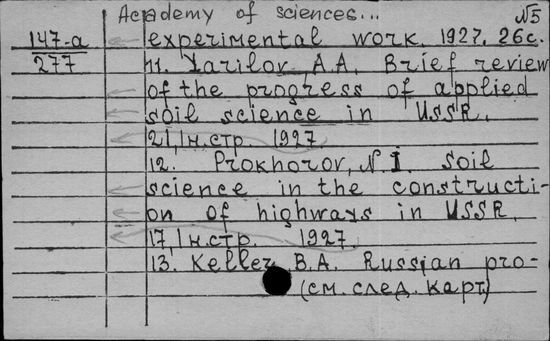 Academy of sciences...
№5
147-a
277
experimental work. 1927. 26с.
11. Jarilov, A.A. Brief review
of the progress of applied
soil science in USSR.
21, 1н.стр. 1927
12. Prokhorov, N.I. Soil
science in the constructi-
on of highways in USSR.
17, 1н.стр. 1927.
13. Keller B.A. Russian pro-
(см. след. карт)